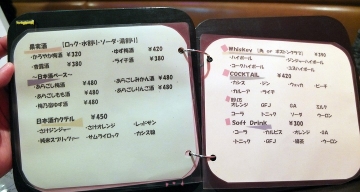 果実酒 [ロック・水割り・ソーダ・湯割り]
・からやか梅酒 ¥320 ・ゆず梅酒 ¥420
・梅酒 ¥380 ・ライチ酒 ¥380
~日本酒ベース~
・あらごし梅酒 ¥480 ・あらごしみかん酒 ¥480
・あらごしもも酒 ¥480 ・あらごしりんご酒 ¥480
・梅乃宿ゆず酒 ¥480
日本酒カクテル ¥450
・さけジンジャー ・さけオレンジ ・レッドサン
・純米スプリッツァー ・サムライロック ・カシス
Whiskey ¥390
・ハイボール ・ジンジャーハイボール
・コークハイボール ・ユズハイボール
COCKTAIL ¥420
・カシス ・ジン ・ウォッカ ・ピーチ
・カルーア ・ライチ
オレンジ GFJ GA ミルク
コーラ トニック ソーダ
Soft Drink ¥300
・コーラ ・カルピス ・オレンジ ・GA
・トニック ・GFJ ・緑茶 ・ウーロン